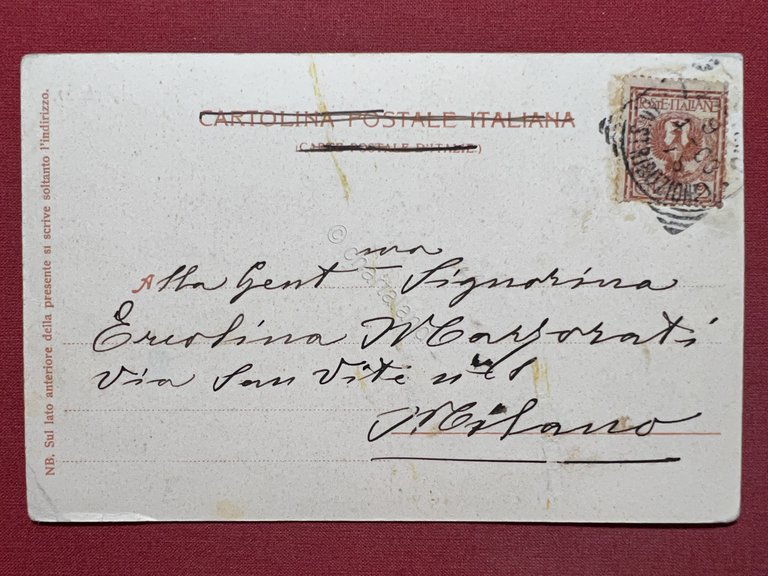 CARTOLINA POSTALE ITALIANA
(CARTE POSTALE D'ITALIE)
POSTE·ITALIANE
NB. Sul lato anteriore della presente si scrive soltanto l'indirizzo.
Alla Gent ma Signorina
Ercolina Marzorati
Via San Vito
Milano